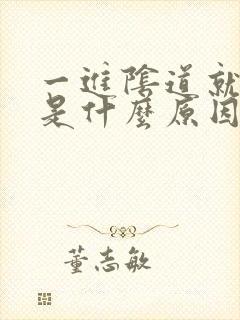 一進陰道就
是什麼原因
董志敏